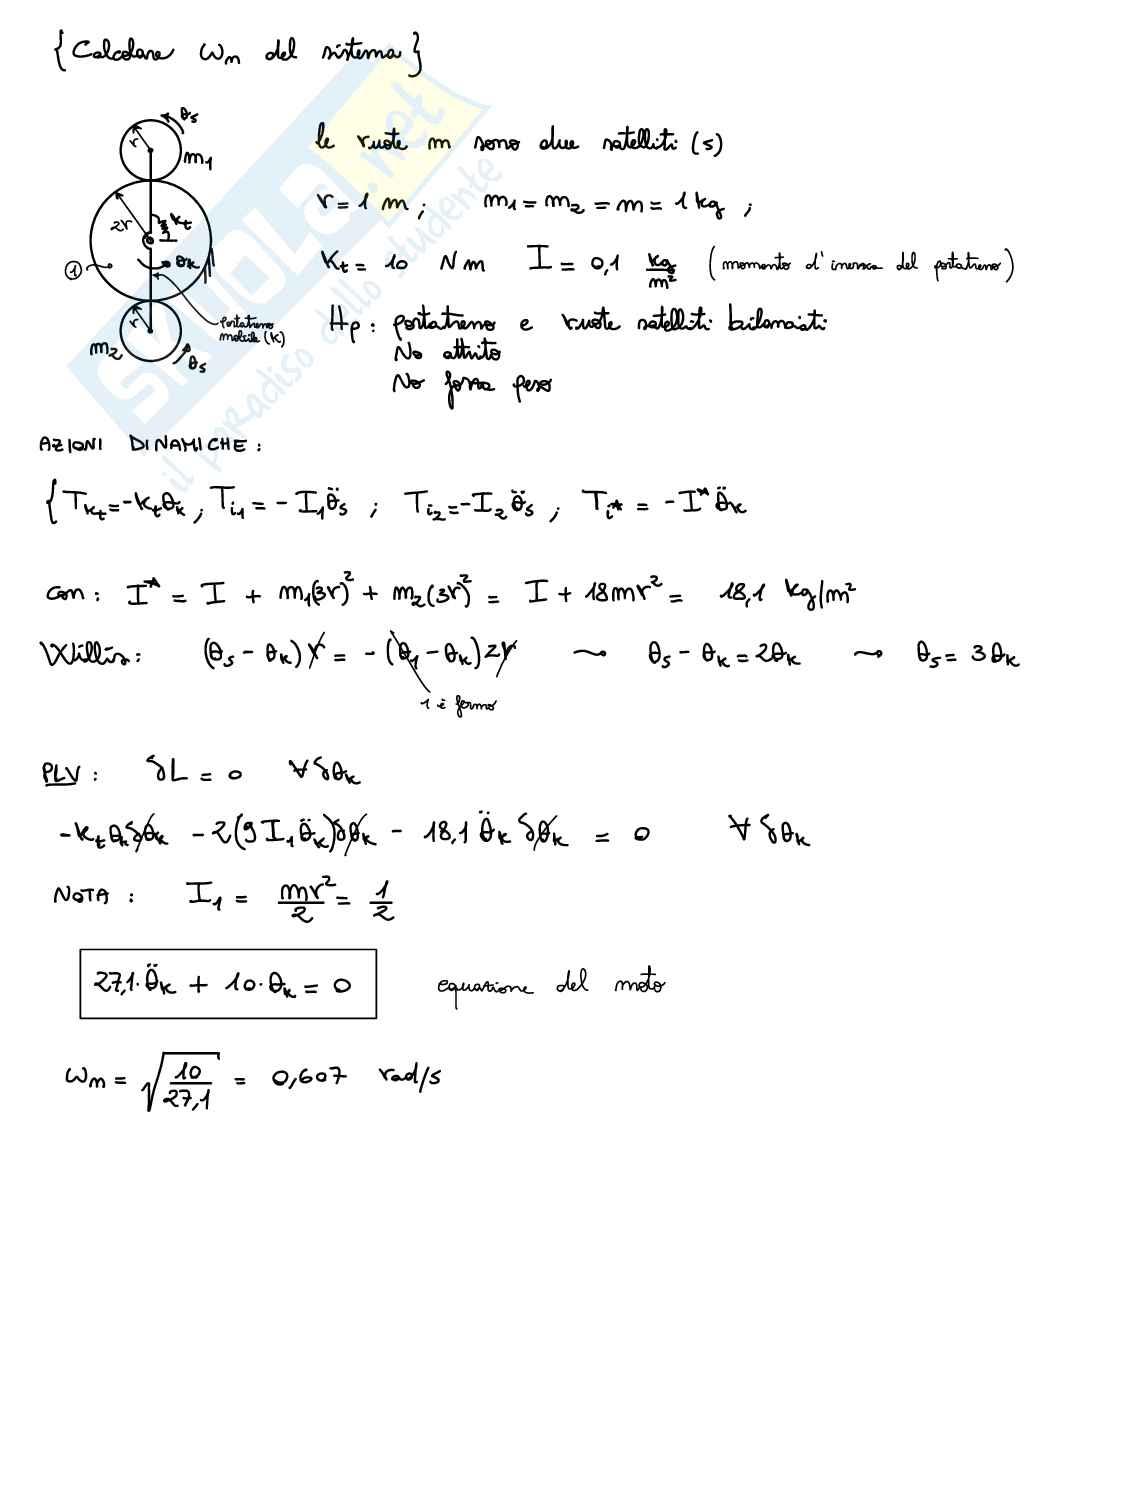 { Calcolare ωn del sistema }
θs
r
m1
2r
kt
1
θk
r
portatreno mobile (k)
m2
θs
le ruote m sono due satelliti (s)
r = 1 m ; m1 = m2 = m = 1 kg ;
Kt = 10 Nm I = 0,1 kg/m² (momento d'inerzia del portatreno)
Hp : portatreno e ruote satelliti bilanciati
No attrito
No forza peso
SKUOLA.net
il paradiso dello studente
AZIONI DINAMICHE :
{ Tkt = -ktθk , Ti1 = - I1θ̈s ; Ti2 = - I2θ̈s ; Ti* = - I* θ̈k
con : I* = I + m1(3r)² + m2(3r)² = I + 18mr² = 18,1 kg/m²
Willis : (θs - θk) r = - (θ1 - θk) 2r ⟿ θs - θk = 2θk ⟿ θs = 3θk
1 è fermo
PLV : δL = 0 ∀ δθk
- kt θk δθk - 2(9 I1 θ̈k) δθk - 18,1 θ̈k δθk = 0 ∀ δθk
NOTA : I1 = mr²/2 = 1/2
27,1 · θ̈k + 10 · θk = 0 equazione del moto
ωn = √(10/27,1) = 0,607 rad/s